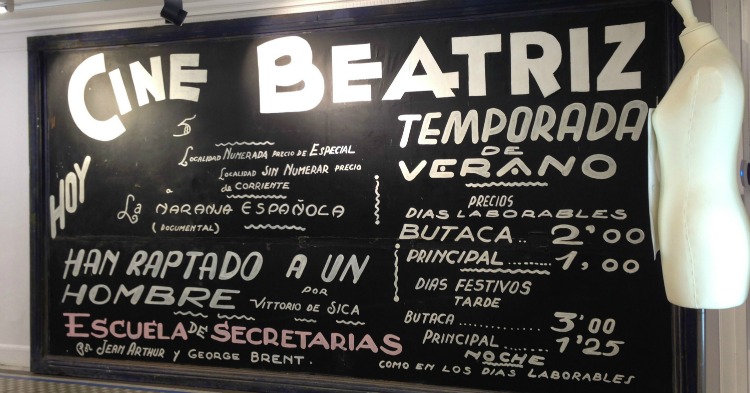 CINE BEATRIZ
HOY
LOCALIDAD NUMERADA PRECIO DE ESPECIAL
LOCALIDAD SIN NUMERAR PRECIO
de CORRIENTE
La NARANJA ESPAÑOLA
(DOCUMENTAL)
HAN RAPTADO A UN
HOMBRE POR VITTORIO DE SICA
ESCUELA DE SECRETARIAS
POR JEAN ARTHUR Y GEORGE BRENT.
TEMPORADA
DE
VERANO
PRECIOS
DIAS LABORABLES
BUTACA.. 2'00
PRINCIPAL........ 1,00
DIAS FESTIVOS
TARDE
BUTACA............. 3'00
PRINCIPAL........ 1'25
NOCHE
COMO EN LOS DIAS LABORABLES